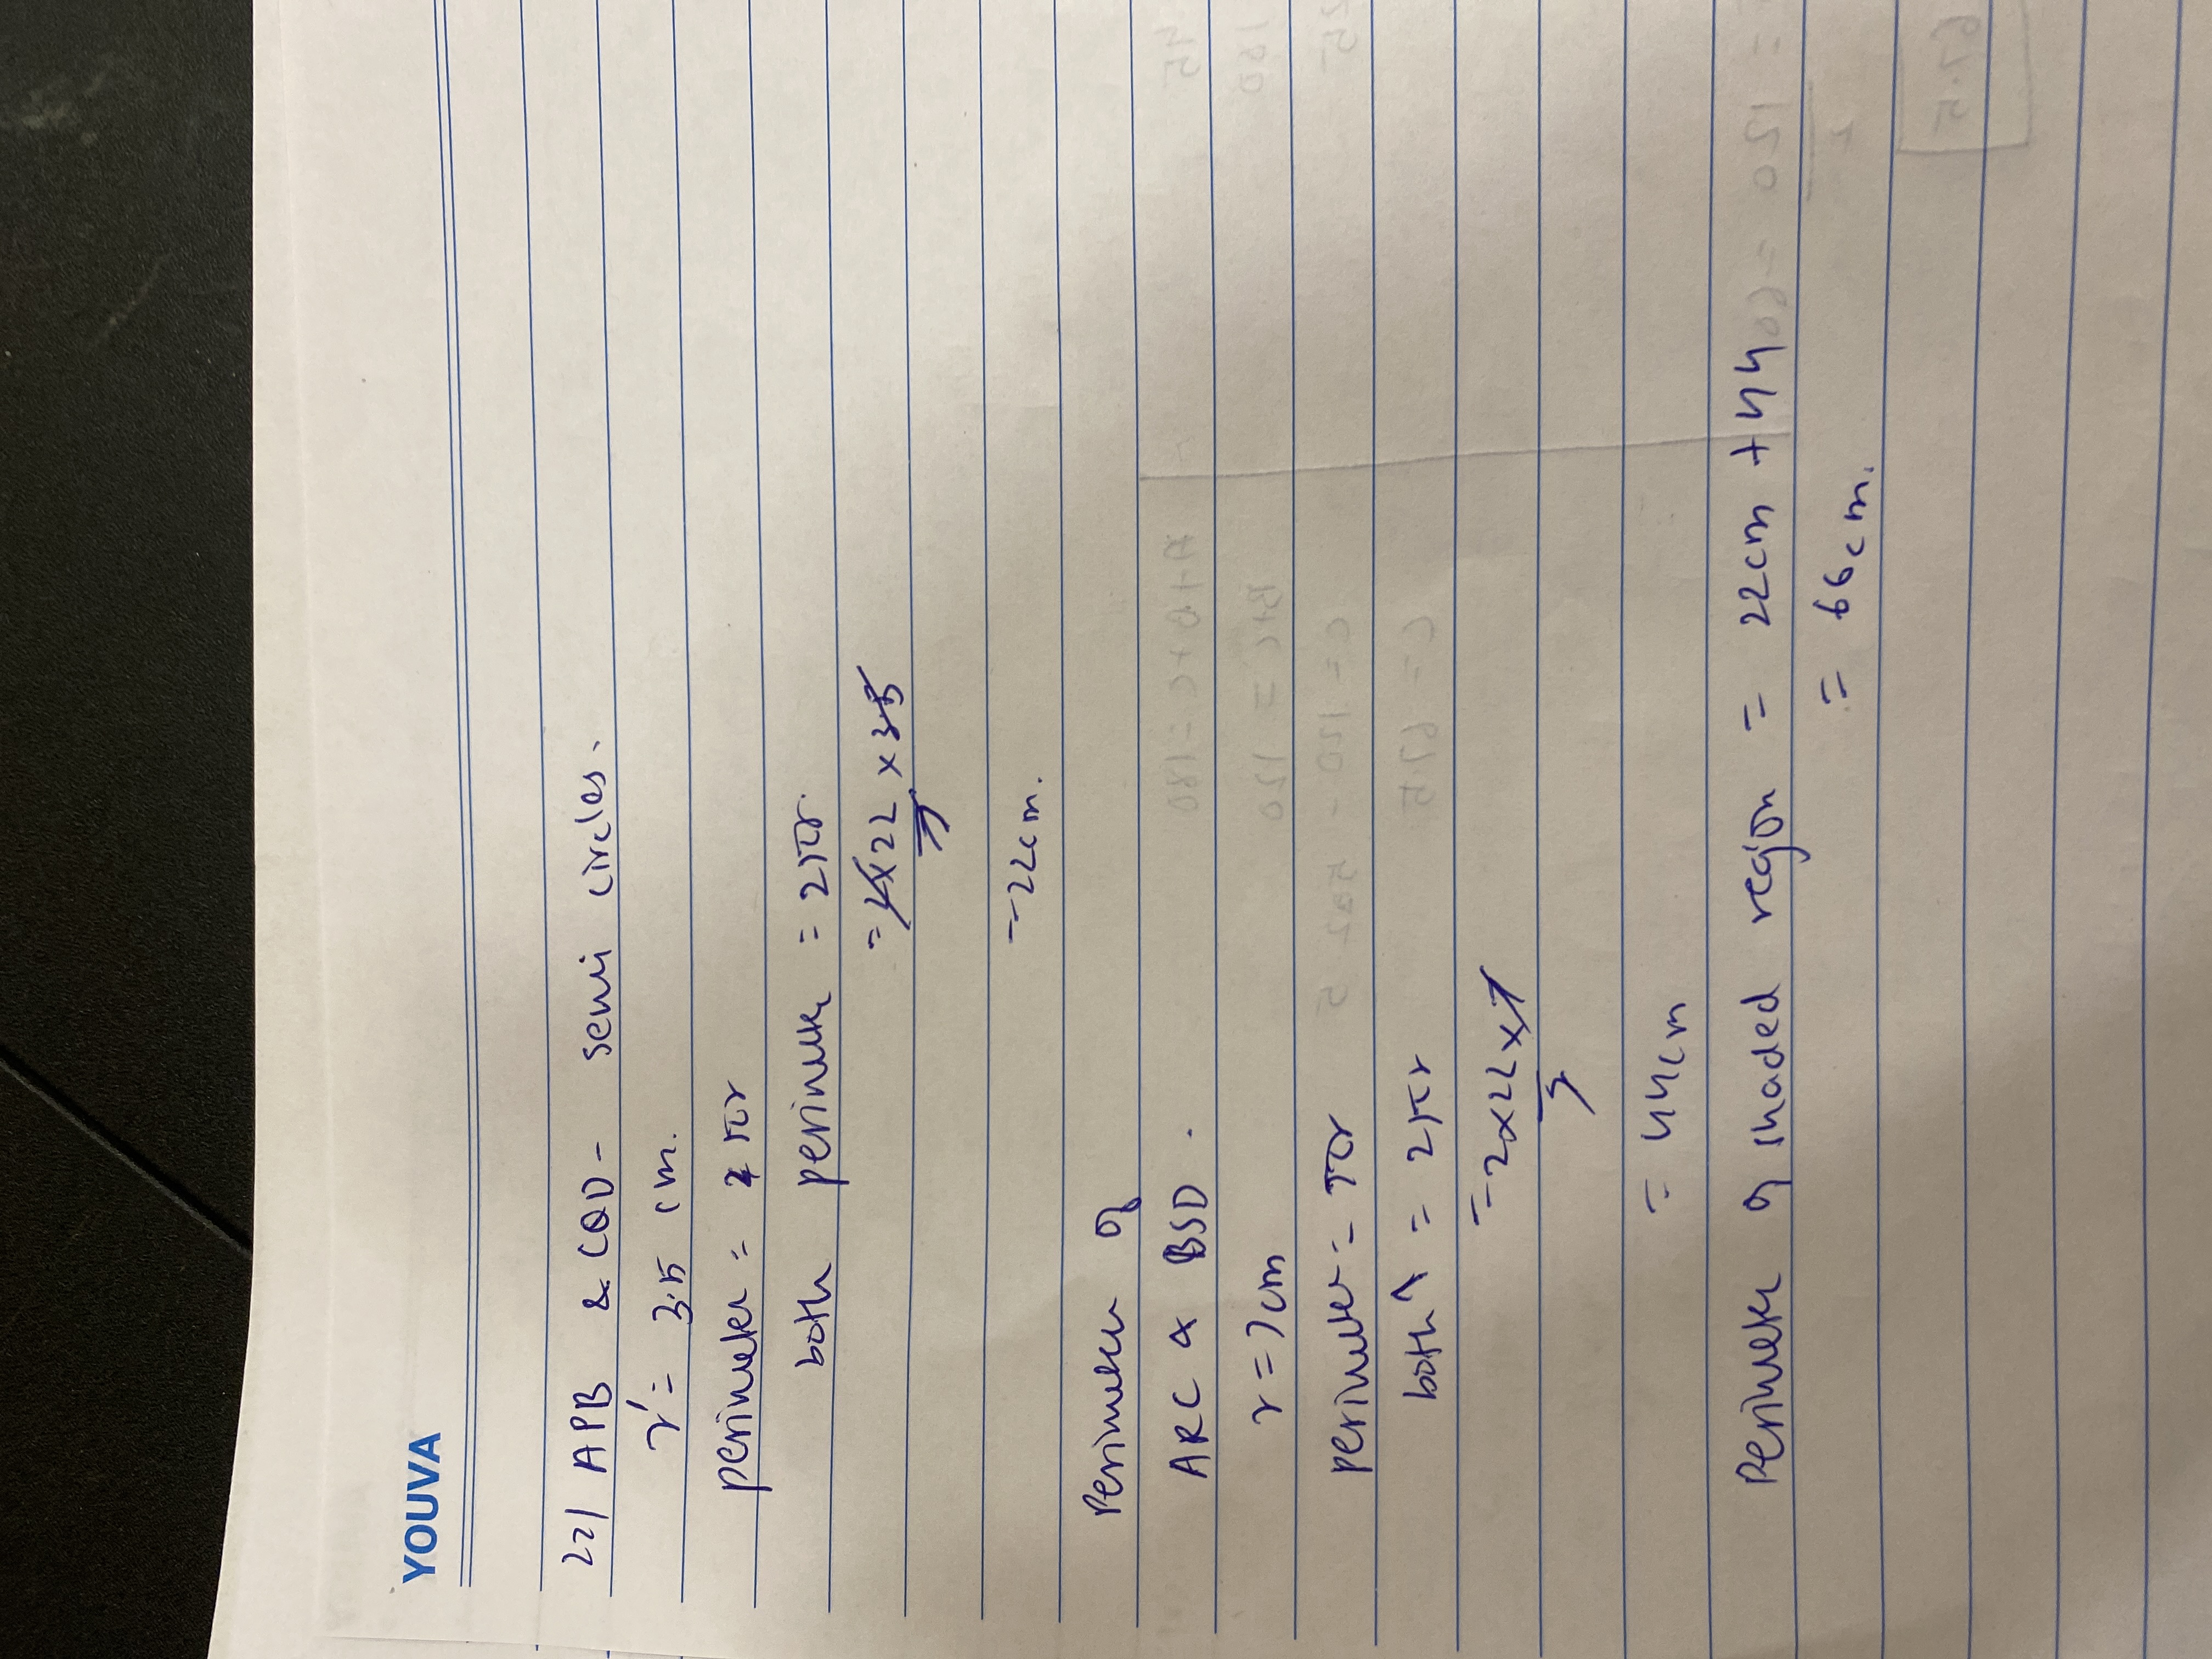 YOUVA
22) APB & CQD - semi circles.
r = 3.5 cm.
perimeter = πr
both perimeter = 2πr.
= 2x22 x 3.5
7
= 22cm.
Perimeter of
ARC & BSD.
r = 7cm
perimeter = πr
both = 2πr
= 2x22x7
7
= 44cm
Perimeter of shaded region = 22cm + 44
= 66cm.